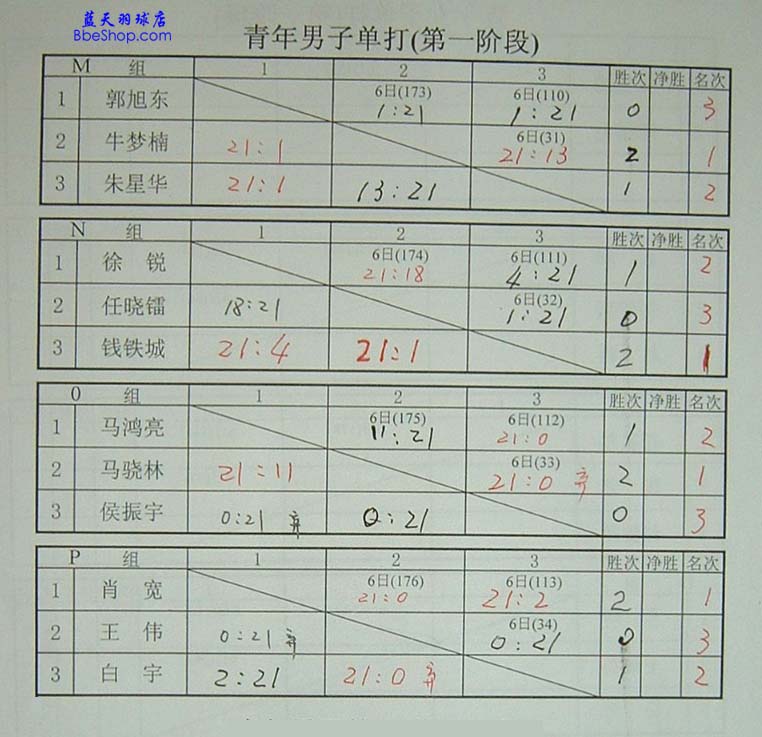 蓝天羽球店
BbeShop.com
青年男子单打(第一阶段)
M 组 1 2 3 胜次 净胜 名次
1 郭旭东 6日(173) 1:21 6日(110) 1:21 0 3
2 牛梦楠 21:1 6日(31) 21:13 2 1
3 朱星华 21:1 13:21 1 2
N 组 1 2 3 胜次 净胜 名次
1 徐 锐 6日(174) 21:18 6日(111) 4:21 1 2
2 任晓镭 18:21 6日(32) 1:21 0 3
3 钱铁城 21:4 21:1 2 1
0 组 1 2 3 胜次 净胜 名次
1 马鸿亮 6日(175) 11:21 6日(112) 21:0 1 2
2 马骁林 21:11 6日(33) 21:0 弃 2 1
3 侯振宇 0:21 弃 0:21 0 3
P 组 1 2 3 胜次 净胜 名次
1 肖 宽 6日(176) 21:0 6日(113) 21:2 2 1
2 王 伟 0:21 弃 6日(34) 0:21 0 3
3 白 宇 2:21 21:0 弃 1 2